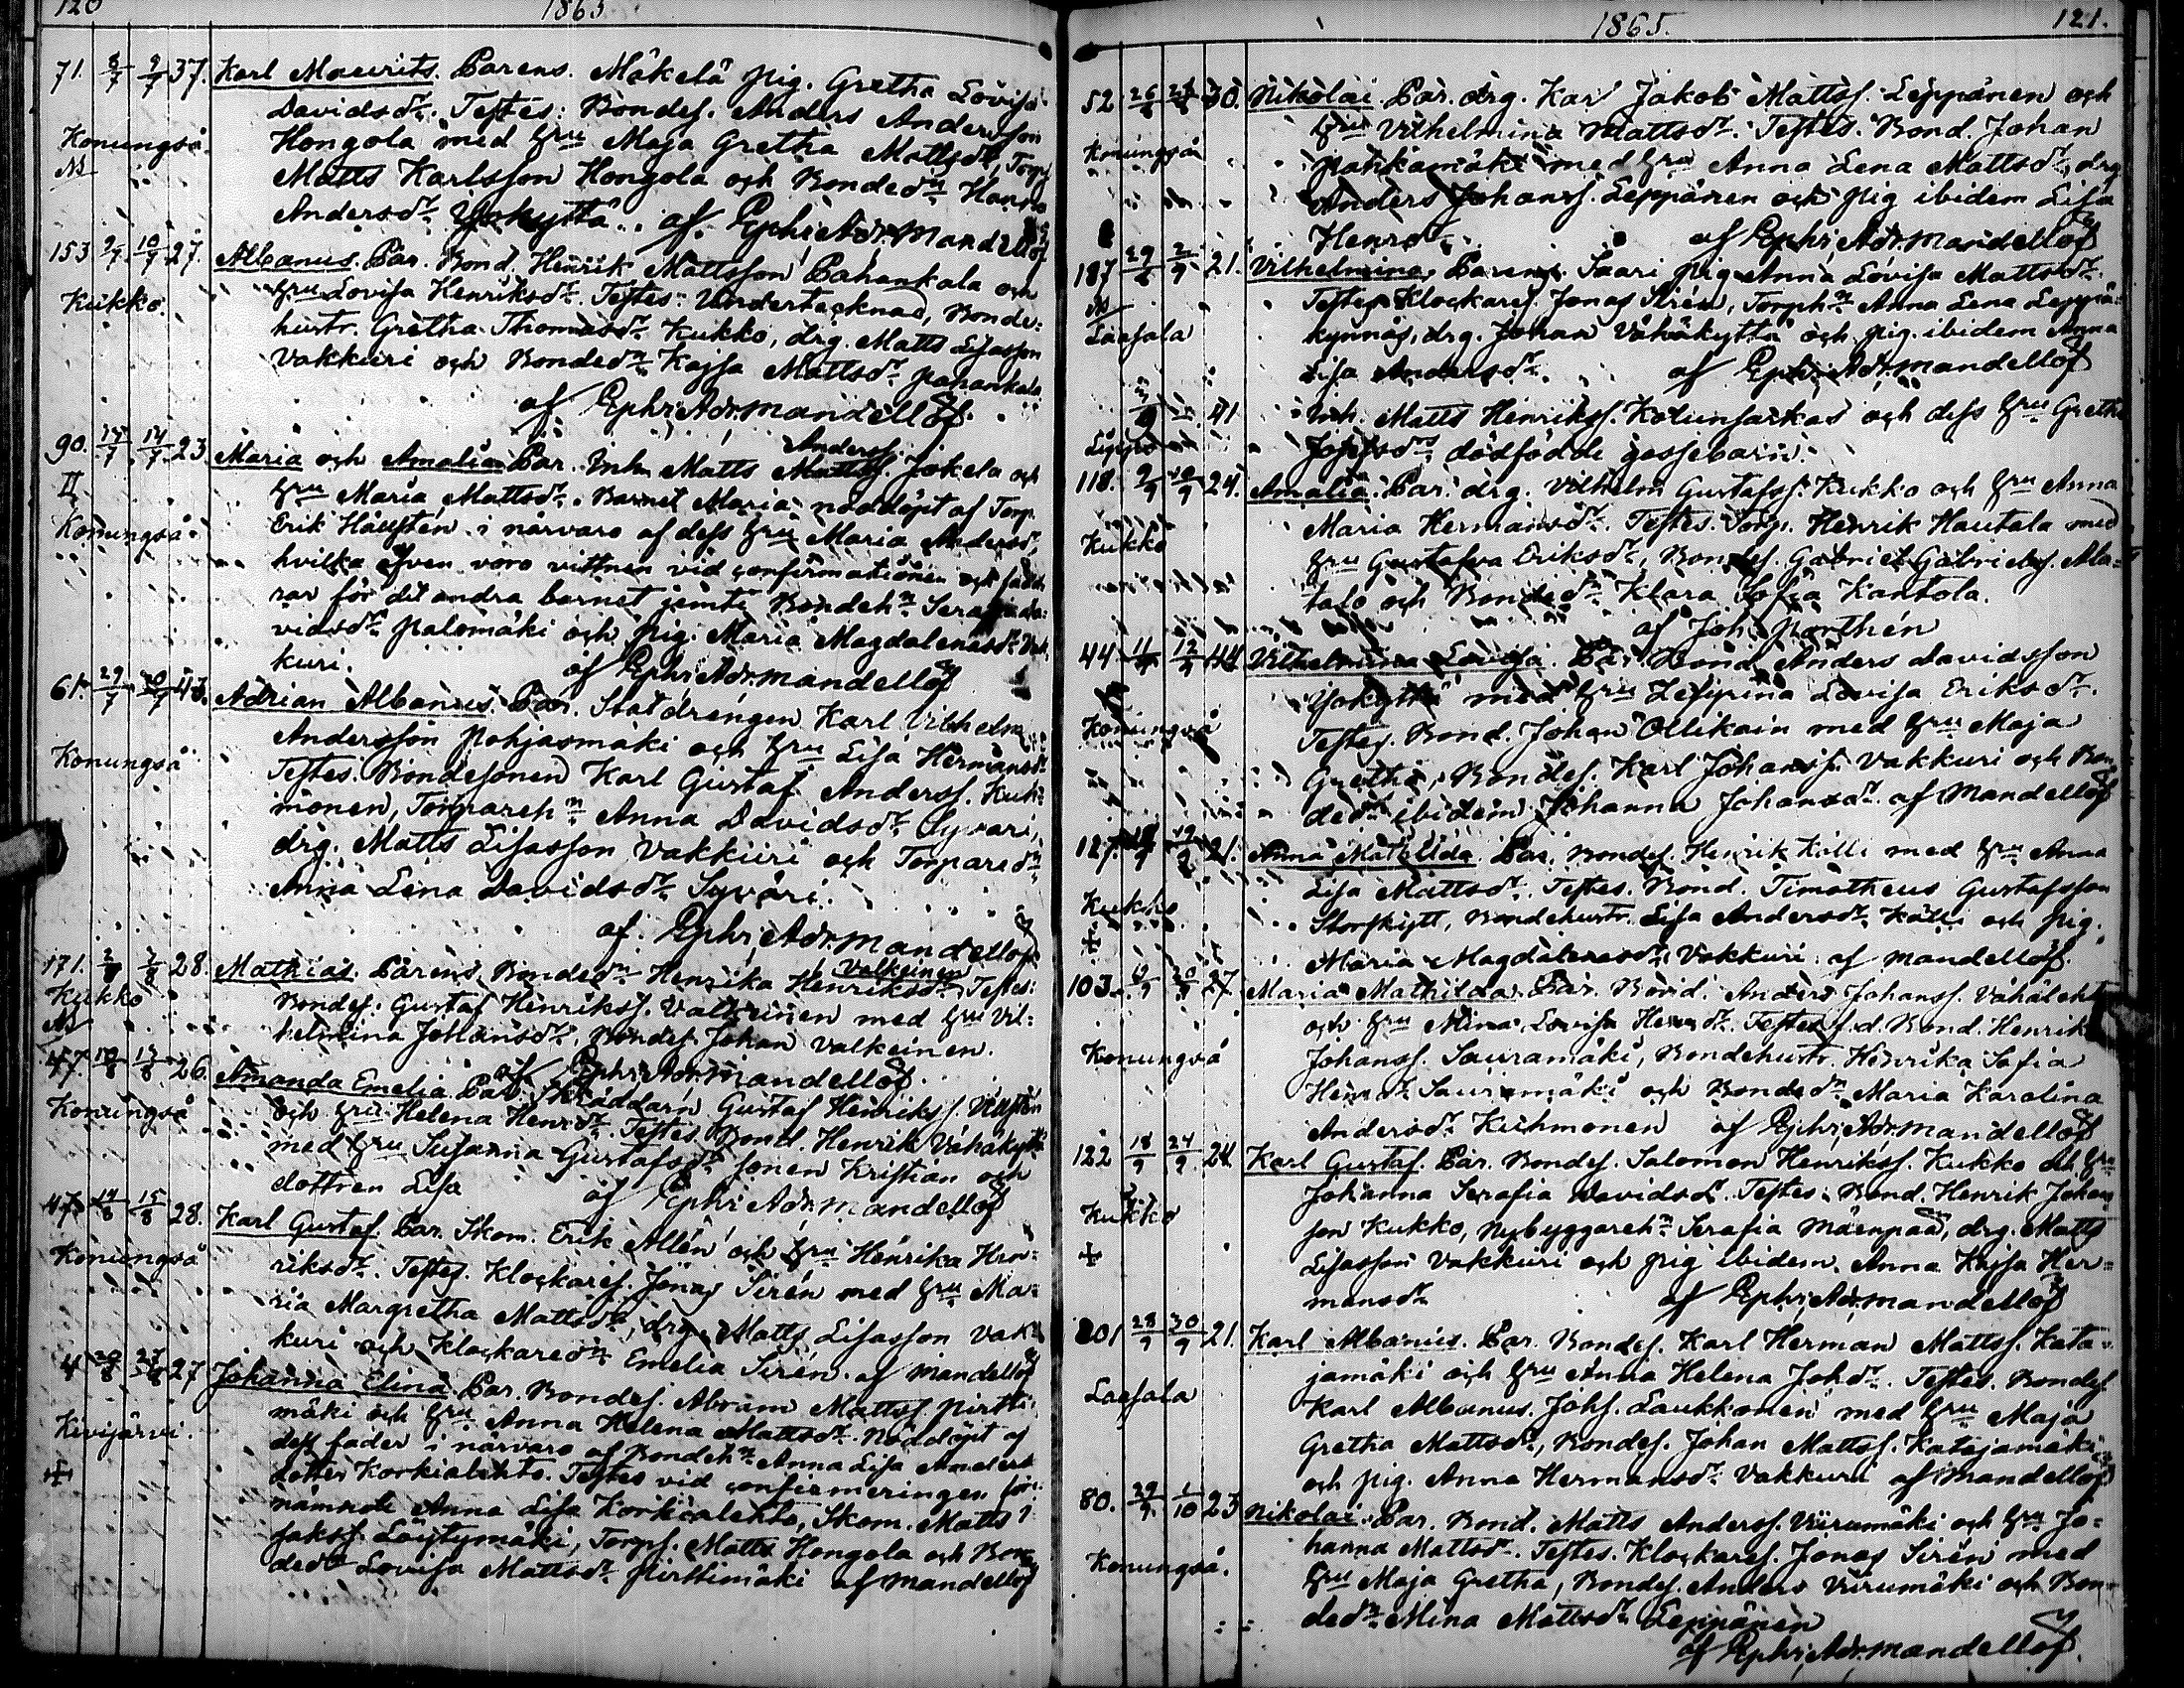 120
1865
71. 8/7 9/7 37. Karl Maurits. Parens. Mäkelä pig. Gretha Lovisa
Davidsdr. Testes: Bondes. Anders Andersson
Konungså. Hongola med hru Maja Gretha Mattsdr, Torp.
Matts Karlsson Hongola och Bondedn Hanna
Andersdr. Yökyttä. af Ephr. Adr. Mandellöf
153 2/7 10/7 27. Albanus. Par. Bond. Henrik Mattsson Pahankala och
Kukko. hru Lovisa Henriksdr. Testes: Undertecknad, Bonde-
hustr. Gretha Thomasdr Kukko, drg. Matts Lisasson
Vakkuri och Bondedn Kajsa Mattsdr Pahankala
af Ephr. Adr. Mandellöf.
Anderss.
90. 14/7 23 Maria och Amalia. Par. Inh. Matts Mattss. Jokela och
II hru Maria Mattsdr. Barnet Maria nöddöpt af Torp.
Konungså Erik Hällsten i närvaro af dess hru Maria Andersdr,
hvilka äfven voro vittnen vid confirmationen och fadd-
rar för det andra barnet jemte Bondehn Serafia Da-
vidsdr Palomäki och pig. Maria Magdalenasdr Vak-
kuri. af Ephr. Adr. Mandellöf
61. 29/7 30/7 43. Adrian Albanus. Par. Statdrengen Karl Vilhelm
Andersson Pohjasmäki och hru Lisa Hermansdr
Konungså Testes. Bondesonen Karl Gustaf Anderss. Kuh-
monen, Torparehn Anna Davidsdr Syväri,
drg. Matts Lisasson Vakkuri och Torparedn
Anna Lena Davidsdr Syväri.
af Ephr. Adr. Mandellöf
Valkeinen
171. 2/8 28. Mathias. Parens. Bondedn Henrika Henriksdr. Testes:
Kukko Bondes. Gustaf Henrikss. Valkeinen med hru Vil-
helmina Johansdr, Bondes Johan Valkeinen.
af Ephr. Adr. Mandellöf.
47. 13/8 26. Amanda Emelia. Par. Skräddarn Gustaf Henrikss.
Konungså och hru Helena Henrdr. Testes. Bond. Henrik Vähäkyttä
med hru Susanna Gustafsdr, sonen Kristian och
dottren Lisa af Ephr. Adr. Mandellöf
47 14/8 15/8 28. Karl Gustaf. Par. Skom. Erik Allén och hru Henrika Hen-
Konungså riksdr. Testes. Klockares. Jonas Sirén med hru Ma-
ria Margretha Mattsdr, drg. Matts Lisasson Vak-
kuri och Klockaredn Emelia Sirén. af Mandellöf
4 27 Johanna Elina. Par. Bondes. Abram Mattss. Pirtti-
Kivijärvi. mäki och hru Anna Helena Mattsdr. Nöddöpt af
dess fader i närvaro af Bondehn Anna Lisa Anders
dotter Korkialehto. Testes vid confirmeringen för-
nämnde Anna Lisa Korkialehto, Skom. Matts I-
sakss. Löytymäki, Torps. Matts Hongola och Bon-
dedn Lovisa Mattsdr Pirttimäki af Mandellöf
1865.
121.
52 26/8 30. Nikolai. Par. drg. Karl Jakob Mattss. Leppänen och
hru Vilhelmina Mattsdr. Testes. Bond. Johan
Konungså Patikamäki med hru Anna Lena Mattsdr, drg
Anders Johanss. Leppänen och pig ibidem Lisa
Henrdr. af Ephr. Adr. Mandellöf
187 29/8 2/9 21. Vilhelmina. Parens. Saari pig Anna Lovisa Mattsdr.
Testes. Klockares. Jonas Sirén, Torphn Anna Lena Leppä-
Laasala kynnäs, drg. Johan Vähäkyttä och pig. ibidem Anna
Lisa Andersdr. af Ephr. Adr. Mandellöf
41 Inh. Matts Henrikss. Kolunsarkas och dess hru Gretha
Josefsdr dödfödde gossebarn.
118. 9/9 10/9 24. Amalia. Par. drg. Vilhelm Gustafss. Kukko och hru Anna
Maria Hermansdr. Testes. Torp. Henrik Hautala med
Kukko hru Gustafva Eriksdr, Bondes. Gabriel Gabrielss. Ala-
talo och Bondedn Klara Sofia Kantola.
af Joh. Porthén
44 11/9 12/9 44 Vilhelmina Lovisa. Par. Bond. Anders Davidsson
Yökyttä med hru Zefyrina Lovisa Eriksdr.
Konungså Testes. Bond. Johan Ollikain med hru Maja
Gretha, Bondes. Karl Johanss. Vakkuri och Bon-
dedn ibidem Johanna Johansdr. af Mandellöf
127. 21. Anna Mathilda. Par. Bondes. Henrik Källi med hru Anna
Lisa Mattsdr. Testes. Bond. Timotheus Gustafsson
Kukko Storskytt, Bondehustr. Lisa Andersdr Källi och pig.
Maria Magdalenasdr Vakkuri. af Mandellöf.
103. 27 Maria Mathilda. Par. Bond. Anders Johanss. Vähälehto
och hru Mina Lovisa Henrdr. Testes f.d. Bond. Henrik
Konungså Johanss. Sauramäki, Bondehustr. Henrika Sofia
Henrdr Sauramäki och Bondedn Maria Karolina
Andersdr Kuhmonen af Ephr. Adr. Mandellöf
122 18/9 24/9 24. Karl Gustaf. Par. Bondes. Salomon Henrikss. Kukko och hru
Johanna Serafia Davidsdr. Testes: Bond. Henrik Johans-
Kukko son Kukko, Nybyggarehn Serafia Mäenpää, drg. Matts
Lisasson Vakkuri och pig ibidem. Anna Kajsa Her-
mansdr af Ephr. Adr. Mandellöf
201 28/9 30/9 21. Karl Albanus. Par. Bondes. Karl Herman Mattss. Kata-
jamäki och hru Anna Helena Johdr. Testes. Bondes.
Laasala Karl Albanus Johs. Laukkonen med hru Maja
Gretha Mattsdr, Bondes. Johan Mattss. Katajamäki
och pig. Anna Hermansdr Vakkuri af Mandellöf
80. 29/9 1/10 23 Nikolai. Par. Bond. Matts Anderss. Viirumäki och hru Jo-
hanna Mattsdr. Testes. Klockares. Jonas Sirén med
Konungså. hru Maja Gretha, Bondes. Anders Viirumäki och Bon-
dedn Mina Mattsdr Leppänen
af Ephr. Adr. Mandellöf.